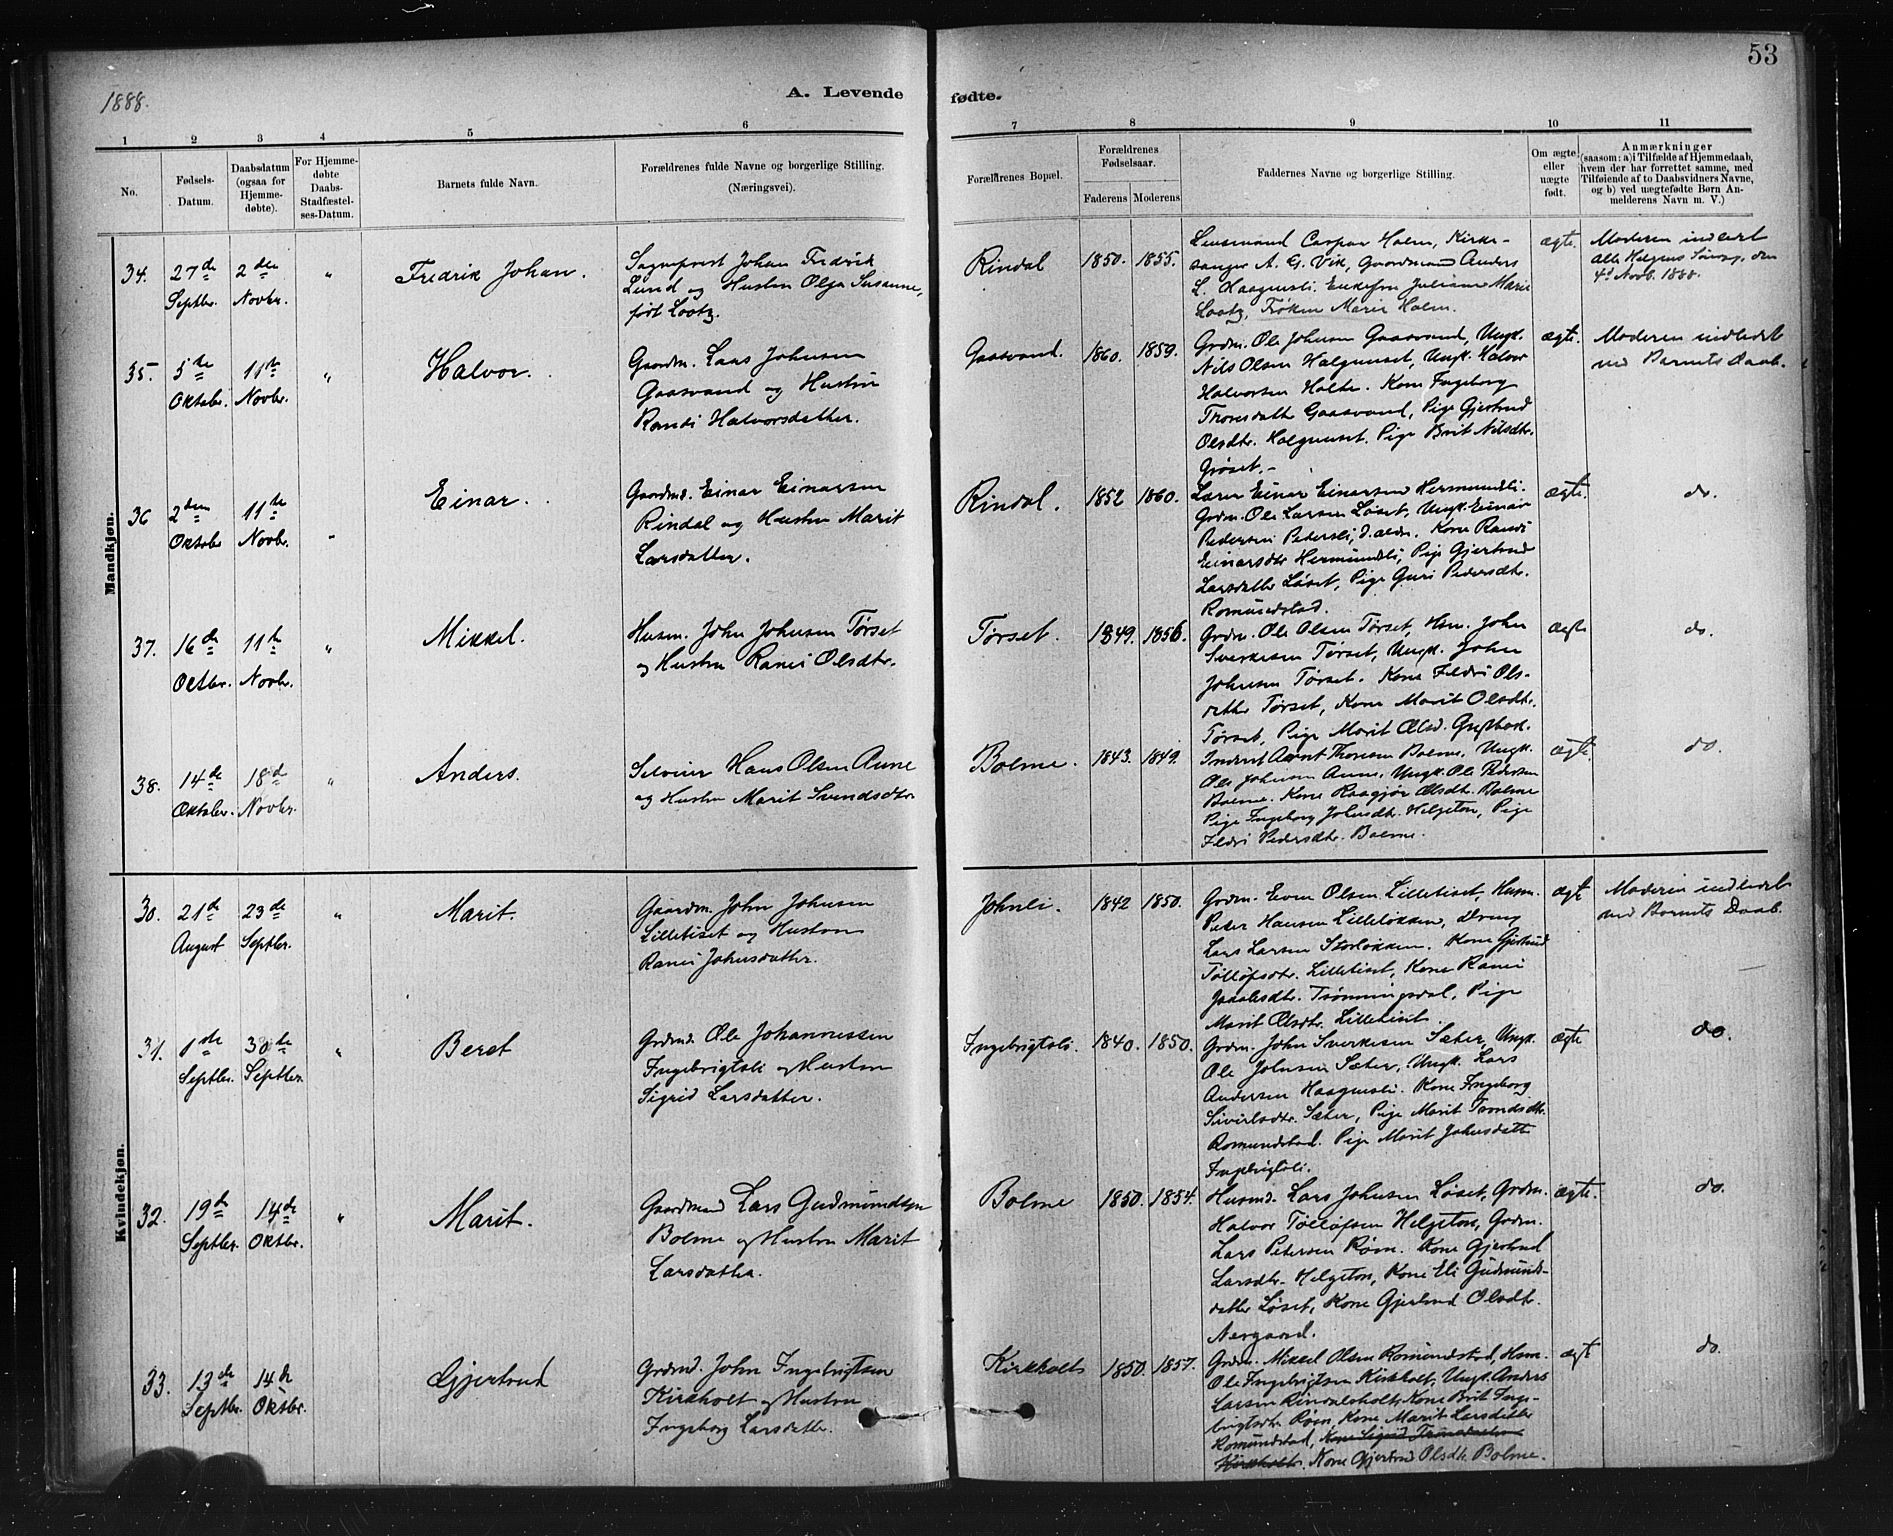 53
1888.
A. Levende fødte.
1 2 3 4 5 6 7 8 9 10 11
No.
Fødsels-Datum.
Daabsdatum (ogsaa for Hjemme-døbte).
For Hjemme-døbte Daabs-Stadfæstel-ses-Datum.
Barnets fulde Navn.
Forældrenes fulde Navne og borgerlige Stilling.
(Næringsvei).
Forældrenes Bopæl.
Forældrenes Fødselsaar.
Faderens Moderens
Faddernes Navne og borgerlige Stilling.
Om ægte eller uægte født.
Anmærkninger
(saasom: a) i Tilfælde af Hjemmedaab,
hvem der har forrettet samme, med
Tilføiende af to Daabsvidners Navne,
og b) ved uægtefødte Børn An-
melderens Navn m. V.)
Mandkjøn.
34. 27de Septbr. 2den Novbr. " Fredrik Johan.
Sogneprest Johan Fredrik
Lund og Hustru Olga Susanne,
født Lootz.
Rindal 1850. 1855.
Lensmand Caspar Holm, Kirke-
sanger A. G. Vik, Gaardmand Anders
L. Haagensli. Enkefru Juliane Marie
Lootz, Frøken Marie Holm.
ægte.
Moderen indledt
alle Helgens Søndag, den
4d Novb. 1888.
35. 5te Oktobr. 11te Novbr. " Halvor.
Gaardm. Lars Johnsen
Gaasvand og Hustru
Randi Halvorsdatter.
Gaasvand. 1860. 1859.
Grdm. Ole Johnsen Gaasvand, Ungk.
Nils Olsen Halgunset, Ungk. Halvor
Halvorsen Holte. Kone Ingeborg
Thoresdatter Gaasvand, Pige Gjertrud
Olsdtr. Halgunset. Pige Brit Nilsdtr.
Grøset.-
ægte.
Moderen indledt
ved Barnets Daab.
36 2den Oktobr 11te Novbr. " Einar.
Gaardmd. Einar Einarsen
Rindal og Hustru Marit
Larsdatter.
Rindal. 1852 1860.
Lærer Einar Einarsen Hermundsli.
Grdm. Ole Larsen Løset, Ungk. Einar
Pedersen Petersli, Kone Randi
Einarsdtr Hermundsli, Pige Gjertrud
Larsdatter Løset, Pige Guri Pedersdtr.
Romundstad.
ægte. do.
37. 16de Octbr. 11te Novbr. " Mikkel.
Husm. John Johnsen Tørset
og Hustru Randi Olsdtr.
Tørset. 1849. 1856.
Grdm. Ole Olsen Tørset, Hsm. John
Sverkesen Tørset, Ungk. John
Johnsen Tørset. Kone Ildri Ols-
datter Tørset, Kone Marit Olsdtr.
Tørset, Pige Marit Olsd.
ægte do.
38. 14de Oktober. 18de Novbr. " Anders.
Selveier Hans Olsen Aune
og Hustru Marit Svendsdtr
Bolme. 1843. 1849.
Inderst Arnt Thoresen Bolme, Ungk.
Ole Johnsen Aune, Ungk. Ole Pedersen
Bolme. Kone Raagjør Olsdt. Bolme
Pige Ingeborg Johnsdtr. Helgeton, Pige
Ildri Pedersdtr. Bolme.
ægte do.
Kvindekjøn.
30. 21de August 23de Septbr. " Marit.
Gaardm. John Johnsen
Lilletiset og Hustru
Randi Johnsdatter.
Johnli. 1842 1850.
Grdm. Even Olsen Lilletiset, Husm.
Peter Hansen Lilleløkken, dreng
Lars Larsen Storløkken. Kone Gjertrud
Tølløfsdtr. Lilletiset, Kone Randi
Trønningsdal, Pige
Marit Olsdtr. Lilletiset.
ægte
Moderen indledt
ved Barnets Daab.
31. 1de Septbr. 30de Septbr. " Beret
Grdmd. Ole Johannessen
Ingebrigtsli og Hustru
Sigrid Larsdatter.
Ingebrigtsli. 1840. 1850.
Grdm. John Sverkesen Sæter, Ungk.
Ole Johnsen Sæter, Ungk. Lars
Andersen Haagensli. Kone Ingeborg
Siverlsdtr. Sæter, Pige Marit Trondsdtr.
Romundstad. Pige Marit Johnsdatter
Ingebrigtsli.
ægte do.
32. 19de Septbr. 14de Oktbr. " Marit.
Gaardmand Lars Gudmundsen
Bolme og Hustru Marit
Larsdatter.
Bolme 1850. 1854.
Husmd. Lars Johnsen Løset, Grdm.
Halvor Tølløfsen Helgeton, Grdm.
Lars Petersen Røm. Kone Gjertrud
Larsdtr. Helgeton, Kone Eli Gudmunds-
datter Løset, Kone Gjertrud Olsdtr.
Nergaard.
ægte. do.
33. 13de Septbr. 14de Oktbr. Gjertrud
Grdmd. John Ingebrigtsen
Kirkholt og Hustru
Ingeborg Larsdatter.
Kirkholt 1850. 1857.
Grdm. Mikkel Olsen Romundstad, Hsm.
Ole Ingebrigtsen Kirkholt, Ungk. Anders
Larsen Rindalsholt, Kone Brit Inge-
brigtsdtr. Røm, Kone Marit Larsdatter
Romundstad, Kone Sigrid
Kirkholt. Kone Gjertrud Olsdtr. Bolme.
ægte do.